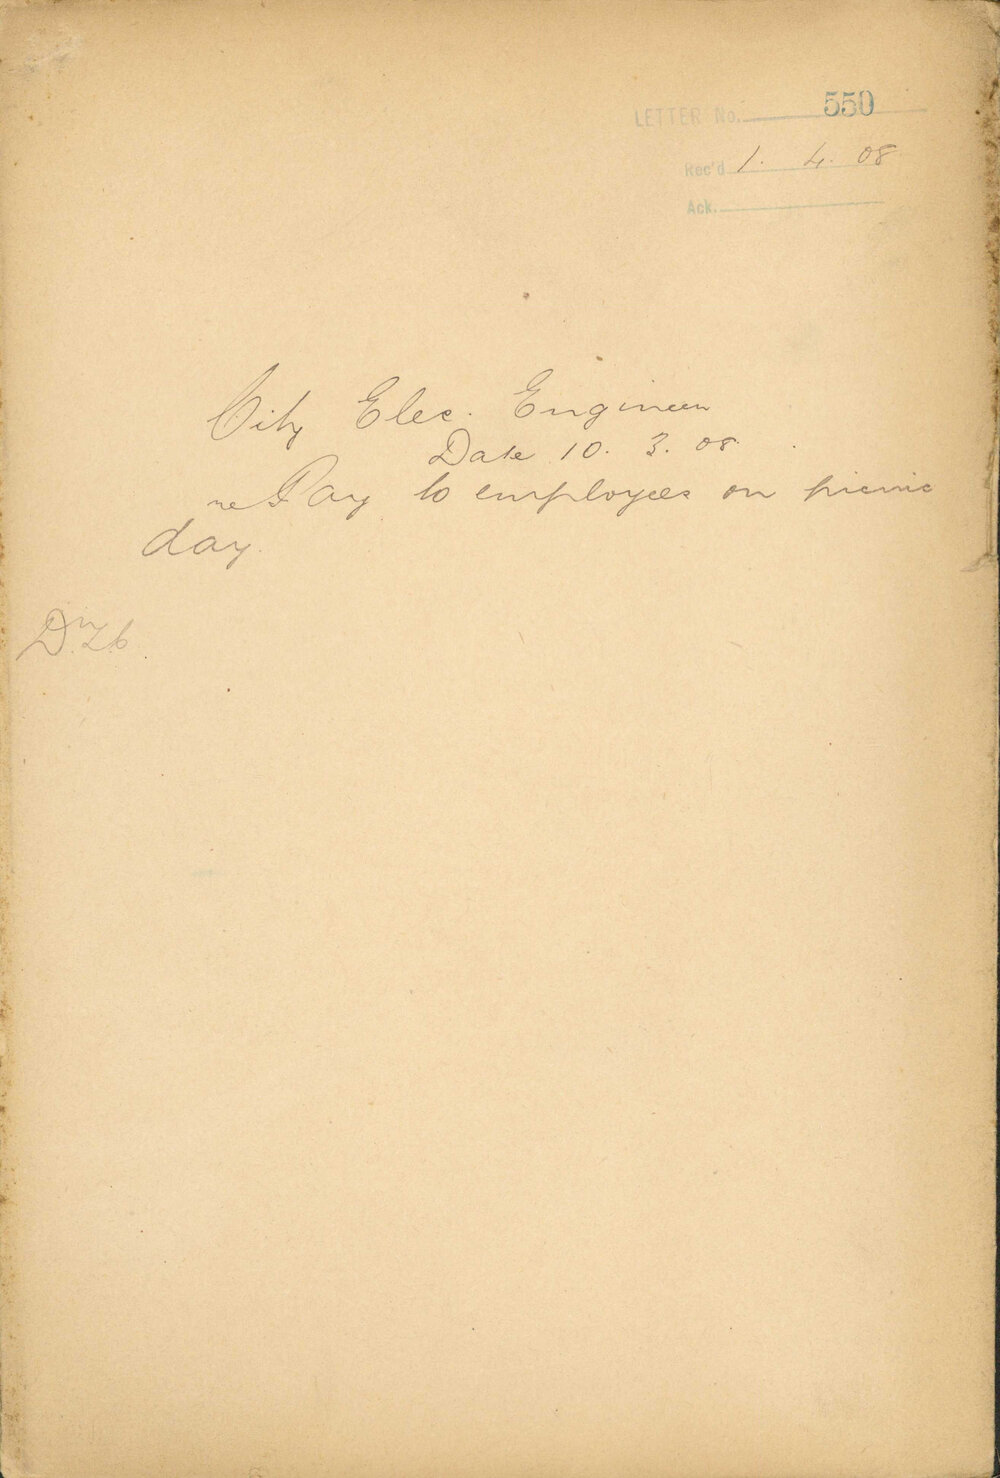 LETTER No. 550
Rec'd 1. 4. 08
Ack.
City Elec. Engineer
Date 10. 3. 08.
re Pay to employees on picnic
day.